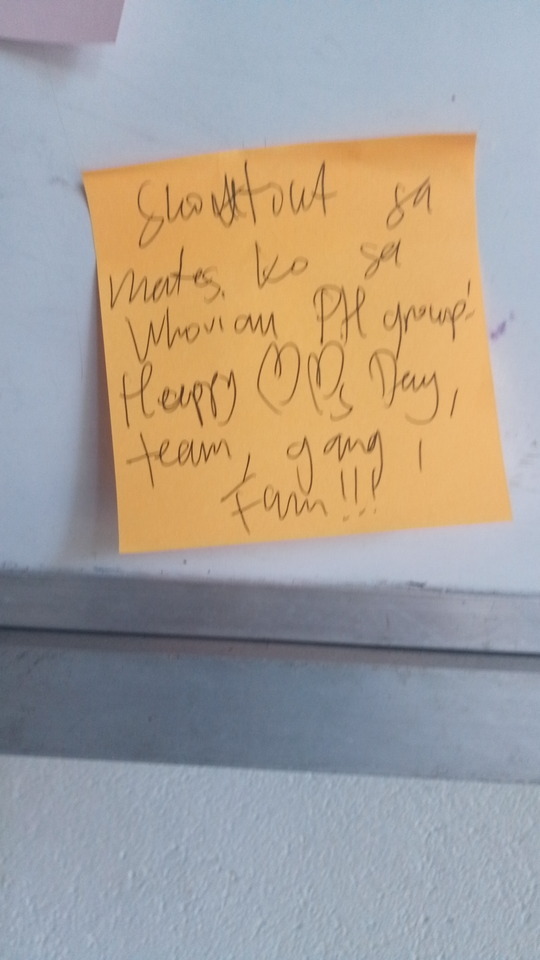 Shoutout sa
mates ko sa
Whovian PH group!
Happy ♡♡s Day,
team, gang,
Fam!!!